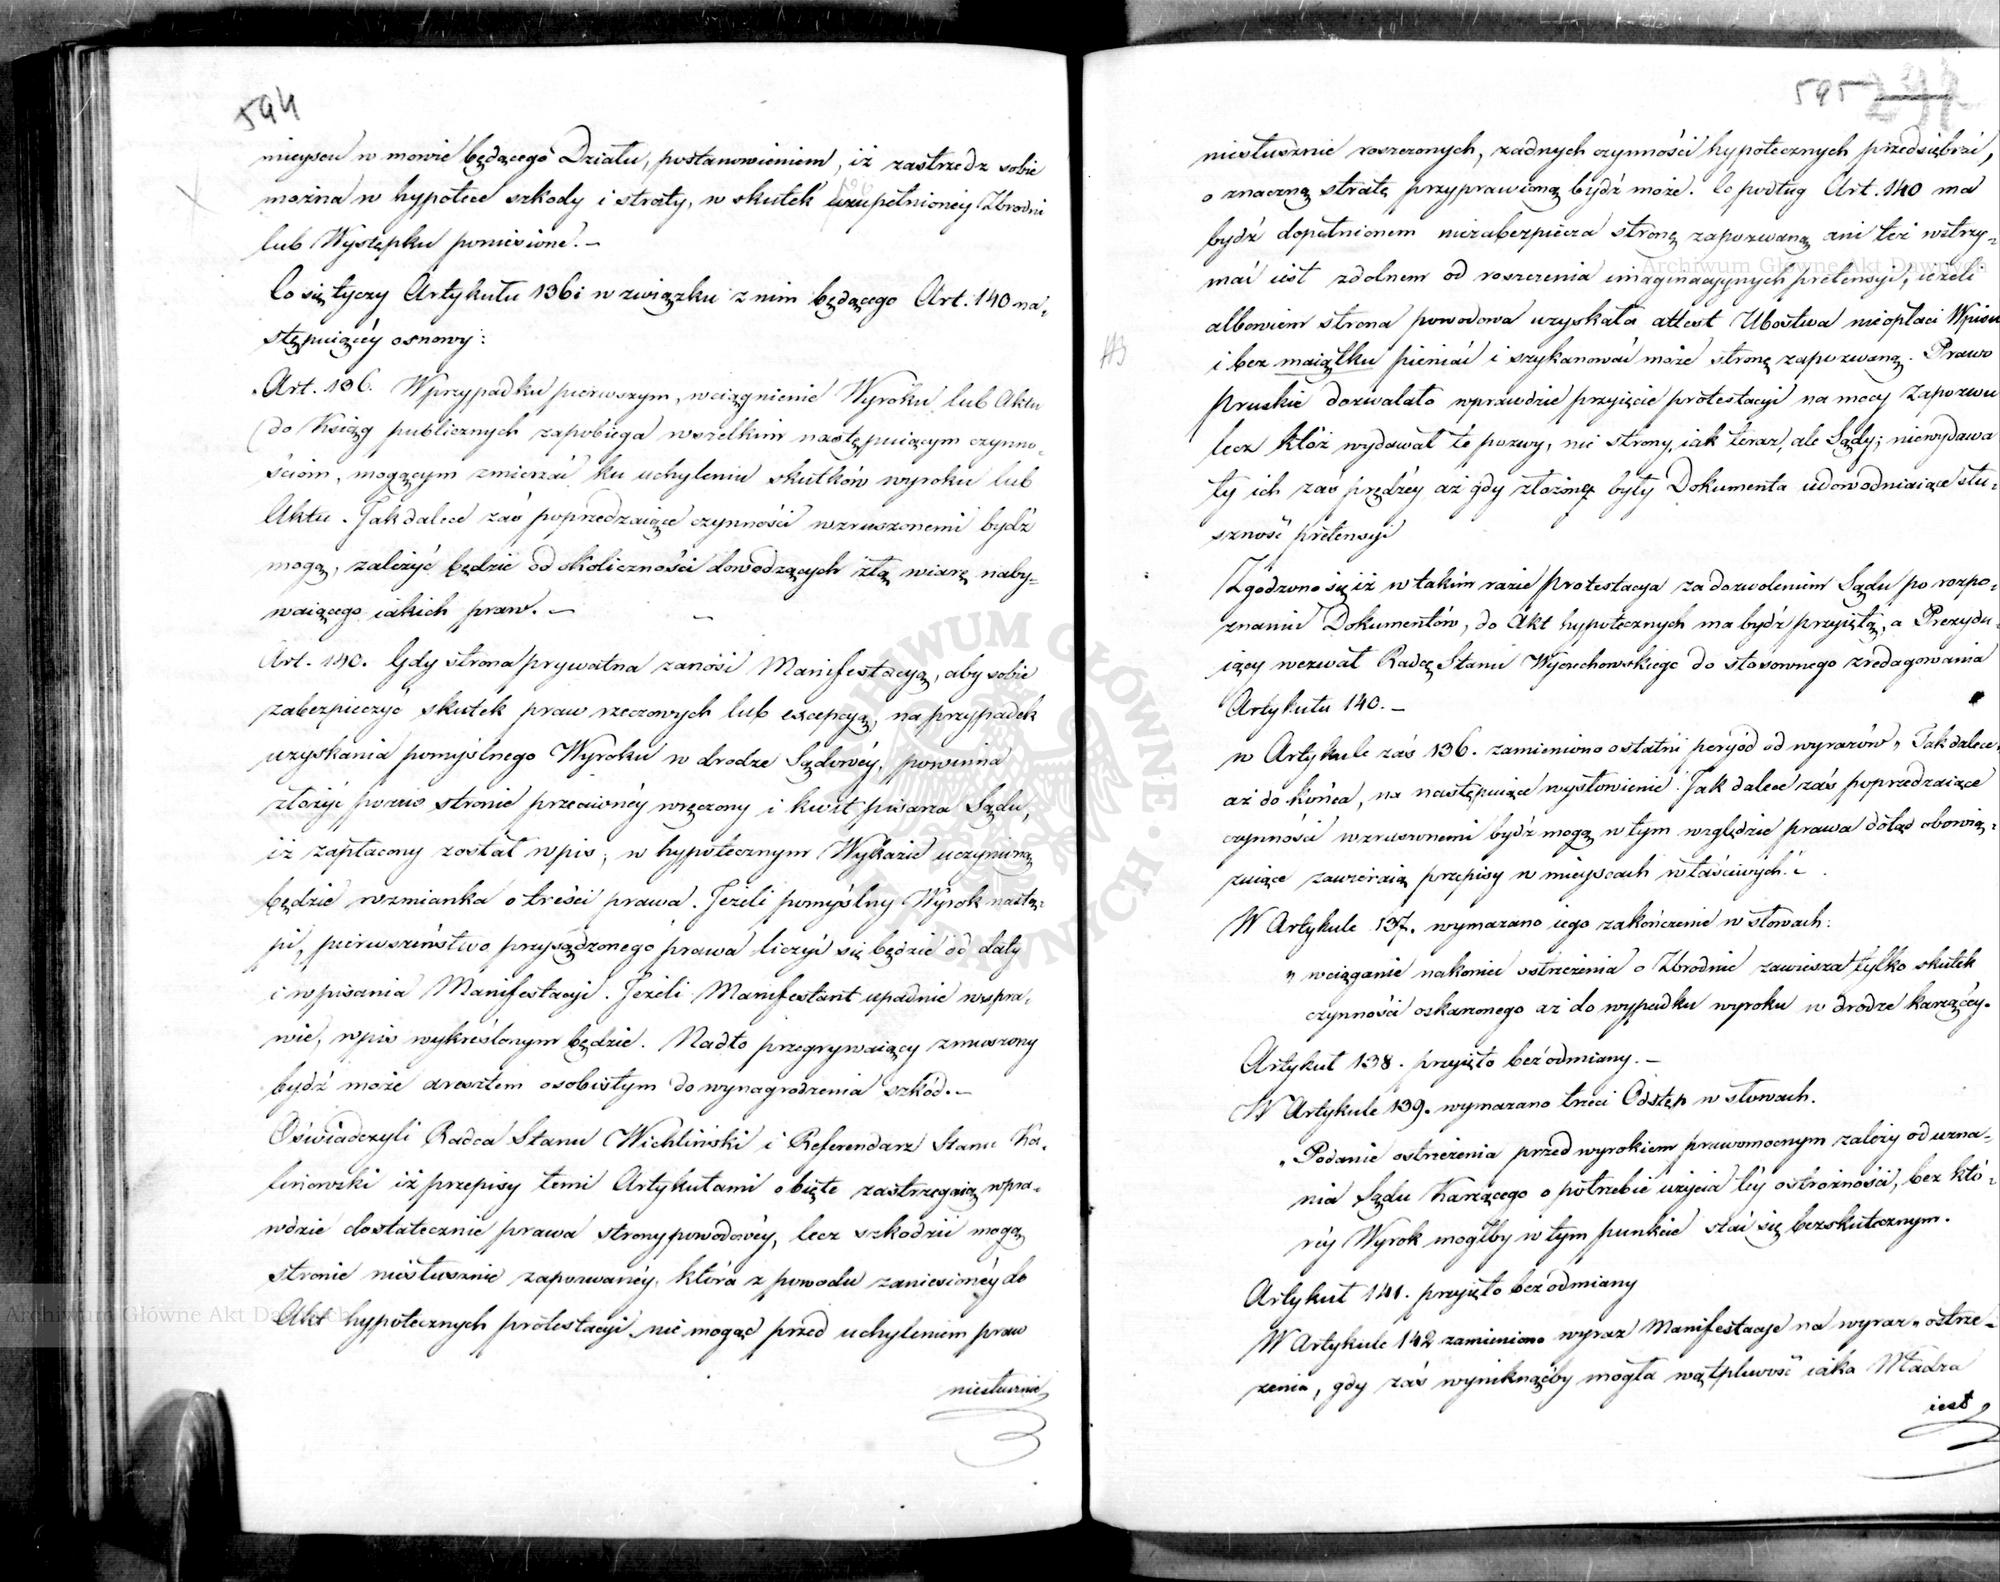 594
mieyscu w mowie będącego Działu, postanowieniem, iż zastrzedz sobie
można w hypotece szkody i straty, w skutek uzupełnioney Zbrodni
lub Występku poniesione. –
Co się tyczy Artykułu 136 i w związku z nim będącego Art. 140 na-
stępuiącéy osnowy:
Art. 136. W przypadku pierwszym, wciągnienie Wyroku lub Aktu
do Ksiąg publicznych zapobiega wszelkim następuiącym czynno-
ściom, mogącym zmierzać ku uchyleniu skutków wyroku lub
Aktu. Jak dalece zaś poprzedzaiące czynności wzruszonemi bydź
mogą, zależyć będzie od okoliczności dowodzących złą wiarę naby-
waiącego iakich praw. –
Art. 140. Gdy strona prywatna zanosi Manifestacyą, aby sobie
zabezpieczyć skutek praw rzeczowych lub excepcyą, na przypadek
uzyskania pomyślnego Wyroku w drodze Sądowéy, powinna
złożyć pozew stronie przeciwnéy wręczony i kwit pisarza Sądu,
iż zapłacony został wpis; w hypotecznym Wykazie uczynioną
będzie wzmianka o treści prawa. Jeżeli pomyślny Wyrok nastą-
pi, pierwszeństwo przysądzonego prawa liczyć się będzie od daty
i wpisania Manifestacyi. Jeżeli Manifestant upadnie w spra-
wie, wpis wykreślonym będzie. Nadto przegrywaiący zmuszony
bydź może aresztem osobistym do wynagrodzenia szkód. –
Oświadczyli Radca Stanu Wichliński i Referendarz Stanu Ka-
linowski iż przepisy temi Artykułami obięte zastrzegaią wpra-
wdzie dostatecznie prawa strony powodowéy, lecz szkodzić mogą
stronie niesłusznie zapozwanéy, która z powodu zaniesionéy do
Akt hypotecznych protestacyi nie mogąc przed uchyleniem praw
niesłusznie
595
niesłusznie roszczonych, żadnych czynności hypotecznych przedsiębrać,
o znaczną stratę przyprawioną bydź może. Co podług Art. 140 ma
bydź dopełnionem niezabezpiecza stronę zapozwaną ani też wstrzy-
mać iest zdolnem od roszczenia imaginacyjnych pretensyi, ieżeli
albowiem strona powodowa uzyskała attest Ubóstwa nieopłaci Wpisu
i bez maiątku pieniać i szykanować może stronę zapozwaną. Prawo
Pruskie dozwalało wprawdzie przyięcie protestacyi na mocy Zapozwu
lecz któż wydawał te pozwy, nie strony, iak teraz, ale Sądy; niewydawa
ły ich zaś prędzéy aż gdy złożone były Dokumenta udowodniaiące słu-
szność pretensyi
Zgodzono się iż w takim razie Protestacya za dozwoleniem Sądu po rozpo-
znaniu Dokumentów, do Akt hypotecznych ma bydź przyiętą, a Prezydu-
iący wezwał Radcę Stanu Wyczechowskiego do stosownego zredagowania
Artykułu 140. –
w Artykule zaś 136. zamieniono ostatni peryód od wyrazów „Jak dalece"
aż do końca, na następuiące wysłowienie: Jak dalece zaś poprzedzaiące
czynności wzruszonemi bydź mogą w tym względzie prawa dotąd obowią-
zuiące zawieraią przepisy w mieyscach właściwych. –
W Artykule 137. wymazano iego zakończenie w słowach:
„wciąganie nakoniec ostrzeżenia o Zbrodnie zawiesza tylko skutek
czynności oskarżonego aż do wypadku wyroku w drodze karzącéy.
Artykuł 138. przyięto bez odmiany. –
W Artykule 139. wymazano trzeci Odstęp w słowach.
„Podanie ostrzeżenia przed wyrokiem prawomocnym zależy od uzna-
nia Sądu Karzącego o potrzebie użycia téy ostrożności, bez któ-
réy Wyrok mogłby w tym punkcie stać się bezskutecznym.
Artykuł 141. przyięto bez odmiany
W Artykule 142 zamieniono wyraz Manifestacye na wyraz „ostrze-
żenia, gdy zaś wyniknąćby mogła wątpliwość iaka Władza
iest
Archiwum Główne Akt Dawnych
Archiwum Główne Akt Dawnych
ARCHIWUM GŁÓWNE AKT DAWNYCH